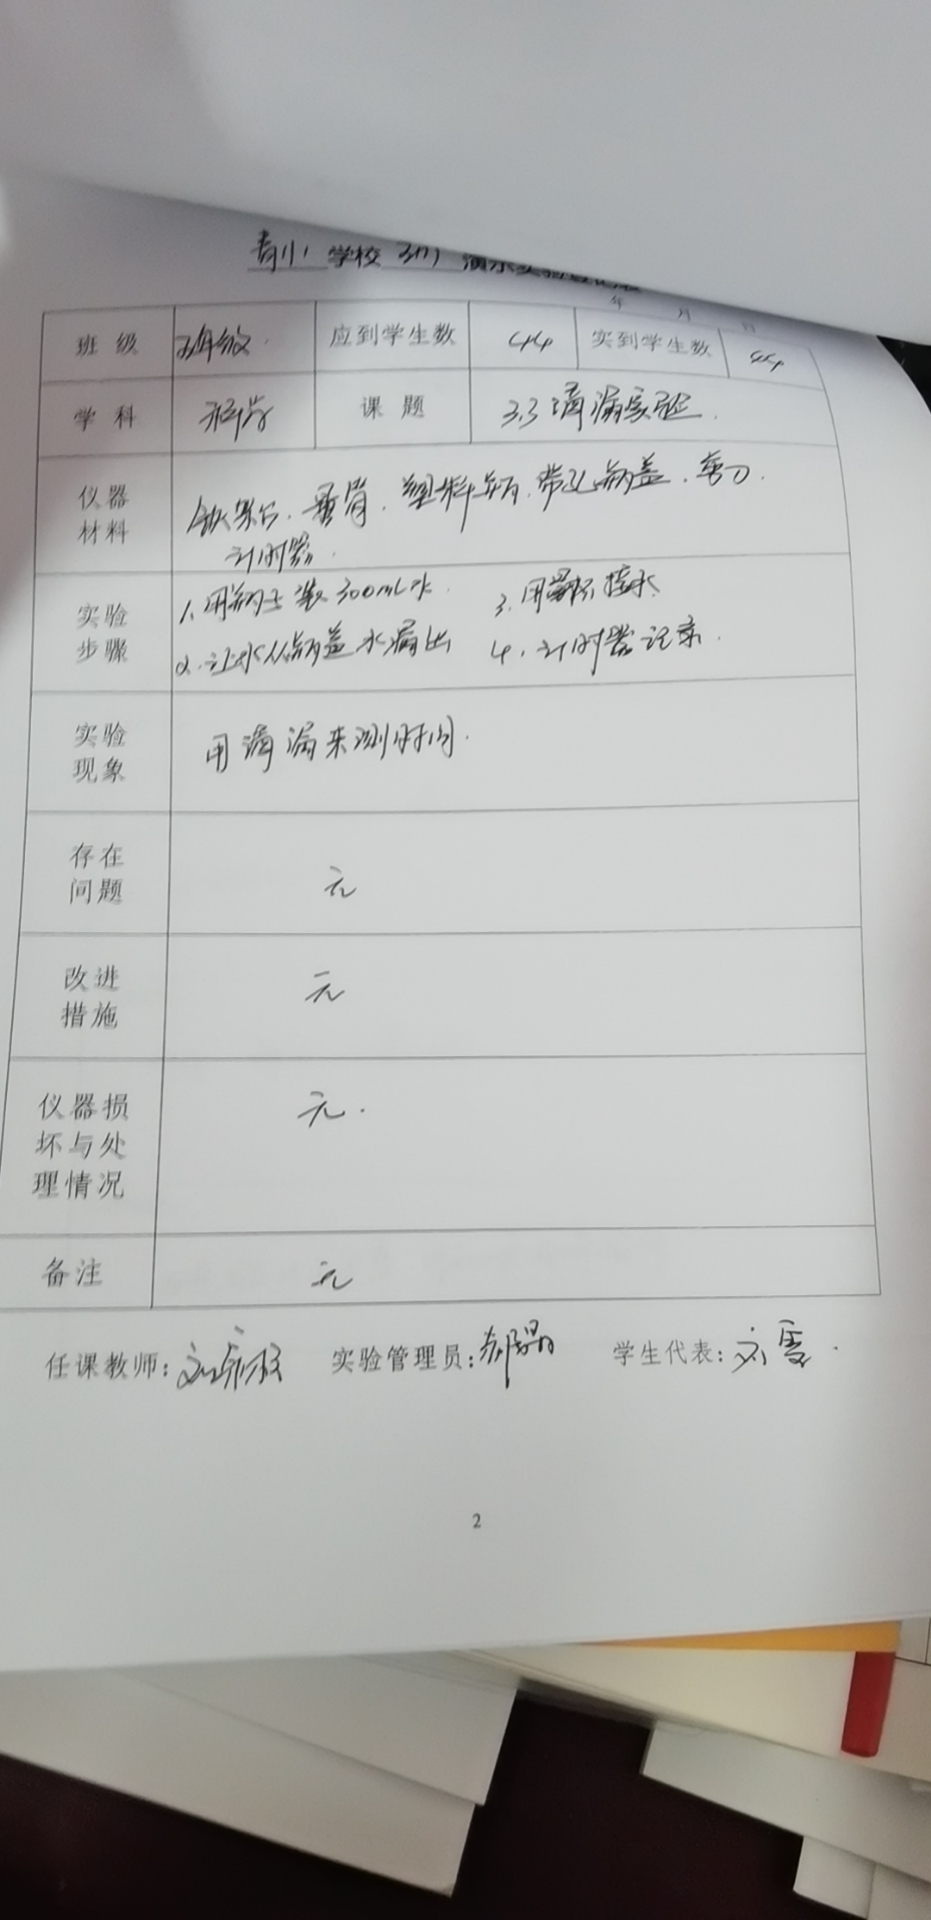 学校
年 月 日
班级 五年级 应到学生数 44 实到学生数 44
学科 科学 课题 3.3滴漏实验
仪器材料 铁架台、量筒、塑料瓶、带孔瓶盖、剪刀、
计时器
实验步骤 1、用瓶子装300mL水 3、用量杯接水
2、让水从瓶盖水漏出 4、计时器记录
实验现象 用滴漏来测时间.
存在问题 无
改进措施 无
仪器损坏与处理情况 无.
备注 无
任课教师: 实验管理员: 学生代表:
2